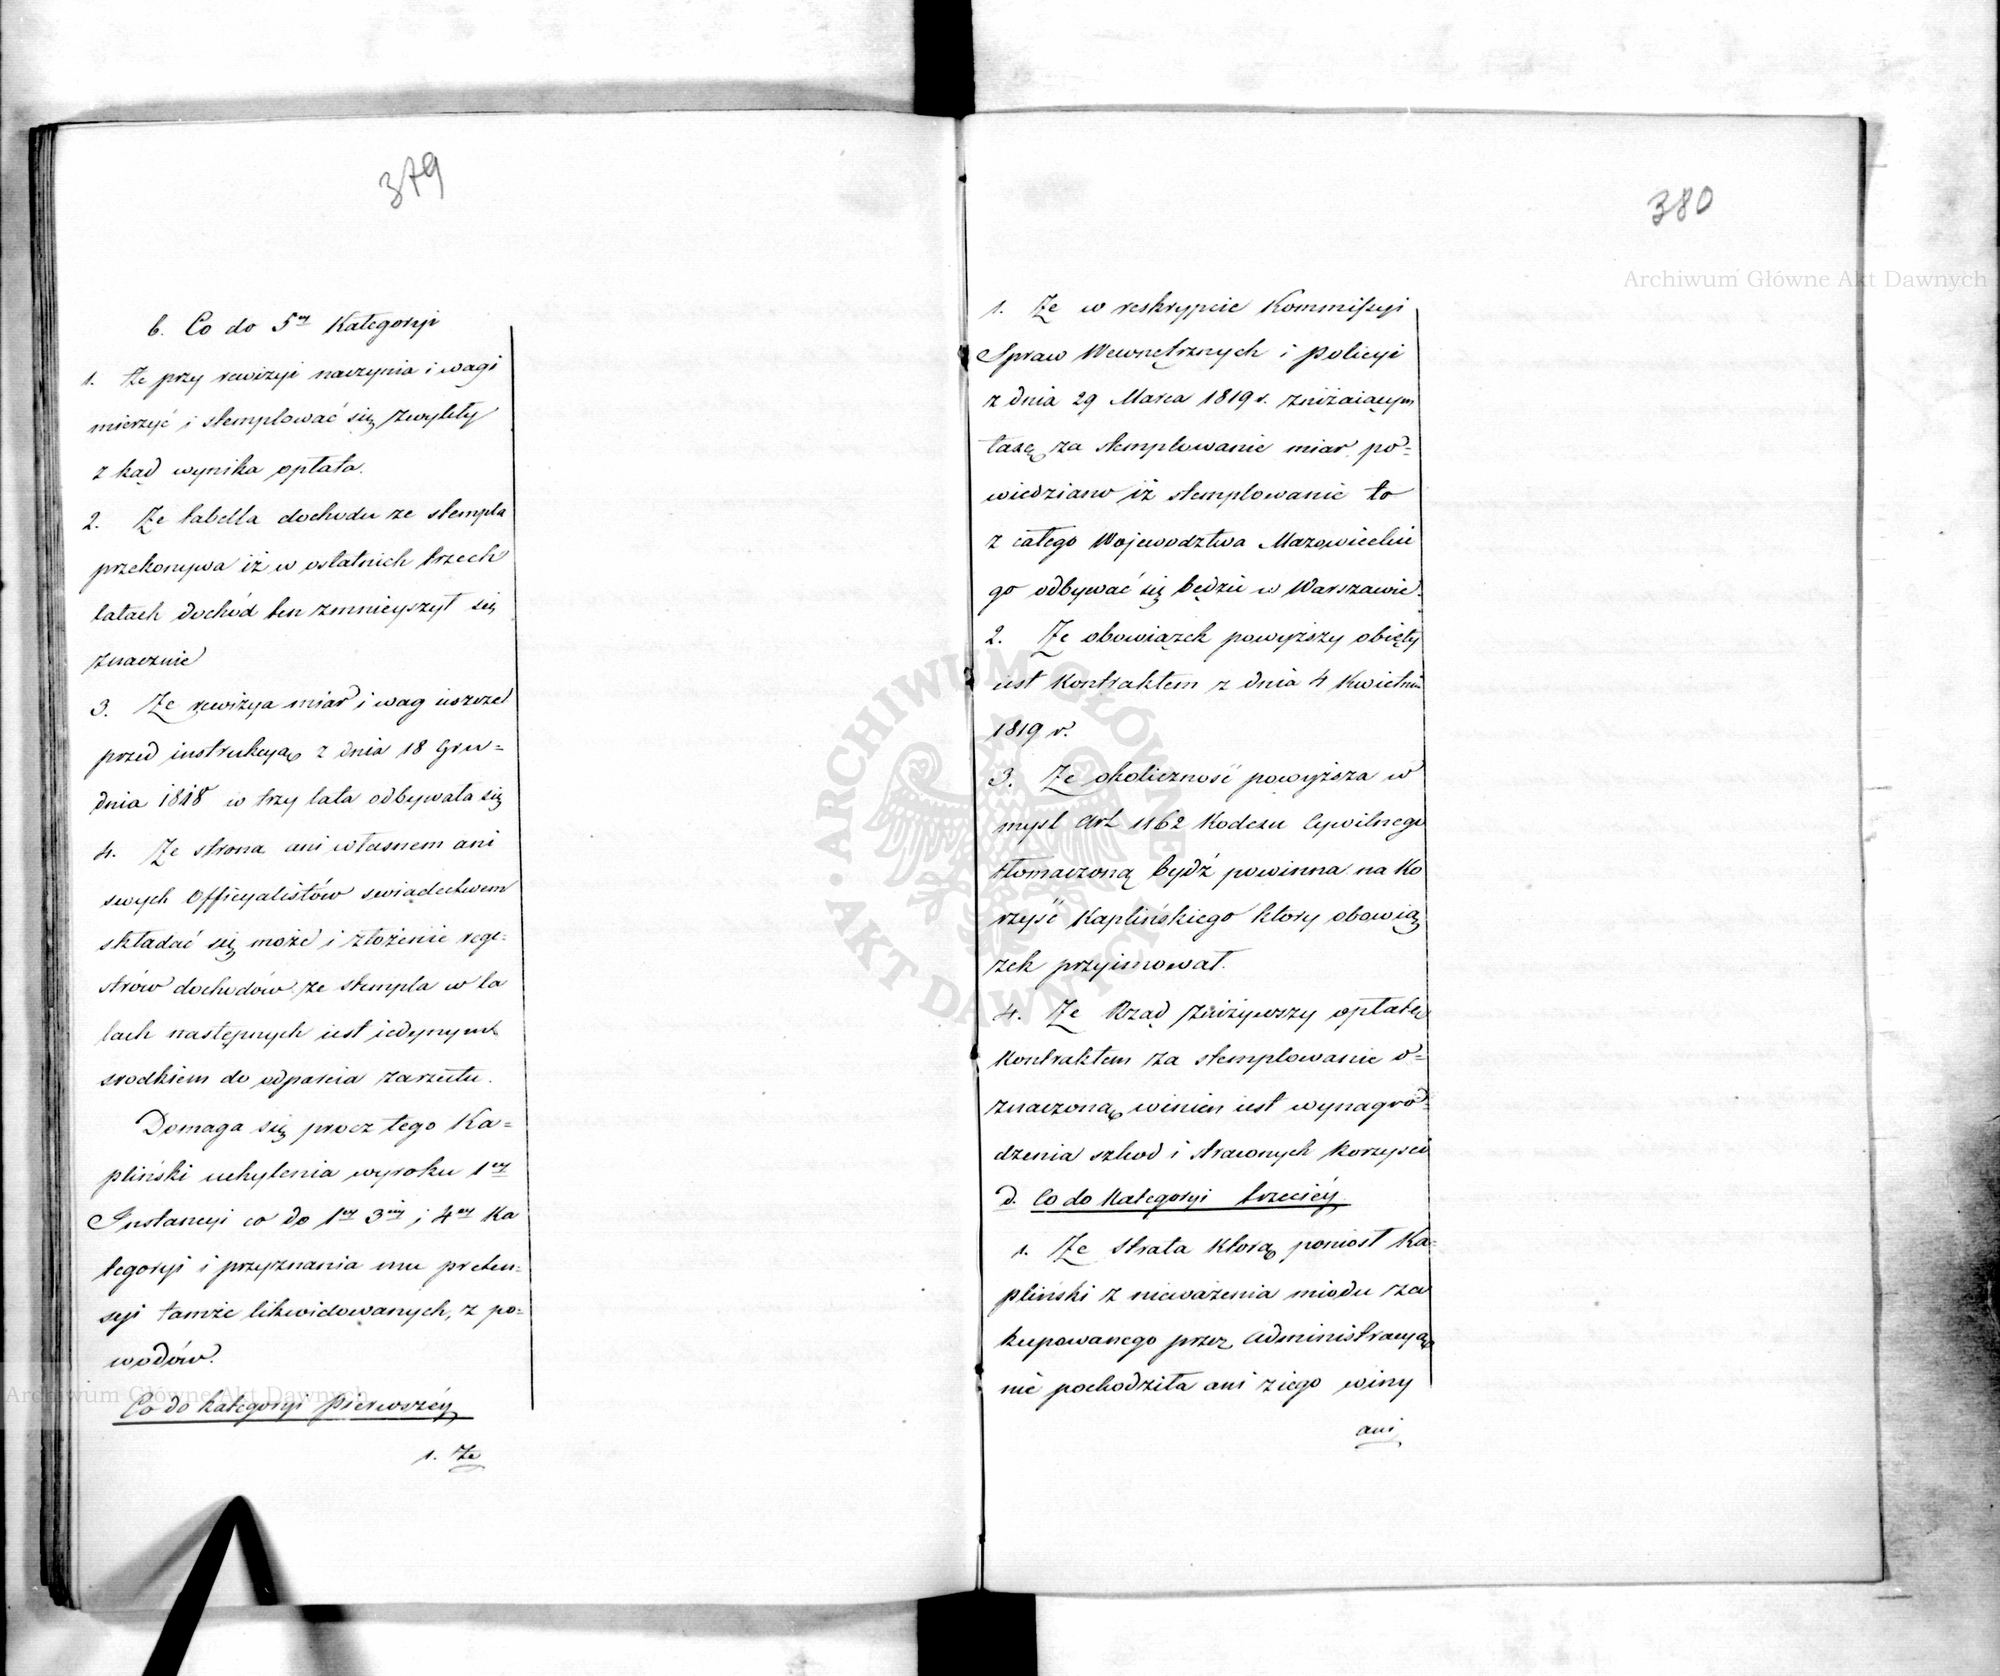 379
b. Co do 5ey Kategoryi
1. Że przy rewizyi naczynia i wagi
mierzyć i stemplować się zwykły
z kąd wynika opłata.
2. Że tabella dochodu ze stempla
przekonywa iż w ostatnich trzech
latach dochód ten zmnieyszył się
znacznie
3. Że rewizya miar i wag ieszcze
przed instrukcyą z dnia 18 Gru=
dnia 1818 w trzy lata odbywała się
4. Że strona ani własnem ani
swych Officyalistów swiadectwem
składać się może i złożenie rege=
strów dochodów ze stempla w la
tach następnych iest iedynym
srodkiem do odparcia zarzutu.
Domaga się procz tego Ka=
pliński uchylenia wyroku 1ey
Instancyi co do 1ey 3ey i 4ey Ka
tegoryi i przyznania mu preten=
syi tamże likwidowanych, z po=
wodów.
Co do kategoryi pierwszéy
1. Że
380
1. Że w reskrypcie Kommissyi
Spraw Wewnętrznych i Policyi
z dnia 29 Marca 1819 r. zniżaiącym
taxę za stemplowanie miar po=
wiedziano iż stemplowanie to
z całego Województwa Mazowieckie
go odbywać się będzie w Warszawie.
2. Że obowiązek powyższy obięty
iest Kontraktem z dnia 4 Kwietnia
1819 r.
3. Że okoliczność powyższa w
mysl Art 1162 Kodexu Cywilnego
tłomaczoną bydź powinna na Ko
rzyść Kaplińskiego ktory obowią
zek przyimował.
4. Że Rząd zniżywszy opłatę
Kontraktem za stemplowanie o=
znaczoną winien iest wynagro=
dzenia szkod i straconych korzysci
d. Co do Kategoryi trzeciéy
1. Że strata ktorą poniosł Ka=
pliński z nieważenia miodu za
kupowanego przez Administracyą
nie pochodziła ani z iego winy
ani
Archiwum Główne Akt Dawnych
Archiwum Główne Akt Dawnych
ARCHIWUM GŁÓWNE
AKT DAWNYCH